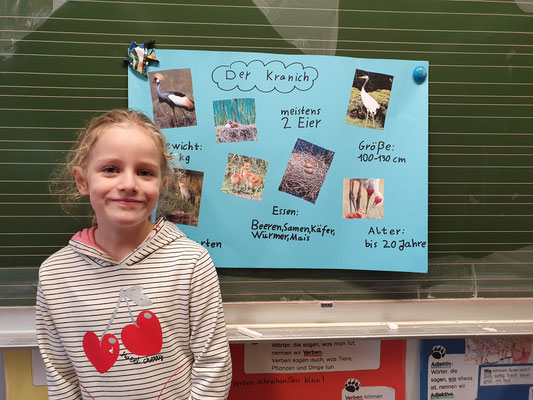 Der Kranich
meistens
2 Eier
Größe:
100-130 cm
kg
Essen:
Beeren, Samen, Käfer,
Würmer, Mais
Alter:
bis 20 Jahre
cherry
Wörter, die sagen, was man tut,
nennen wir Verben.
Verben sagen auch, was Tiere,
Pflanzen und Dinge tun.
Verben schreiben wir klein!
Verben können
Adjektiv
Wörter,
die sagen,
wie etwas
ist, nennen
wir
Adjektive.